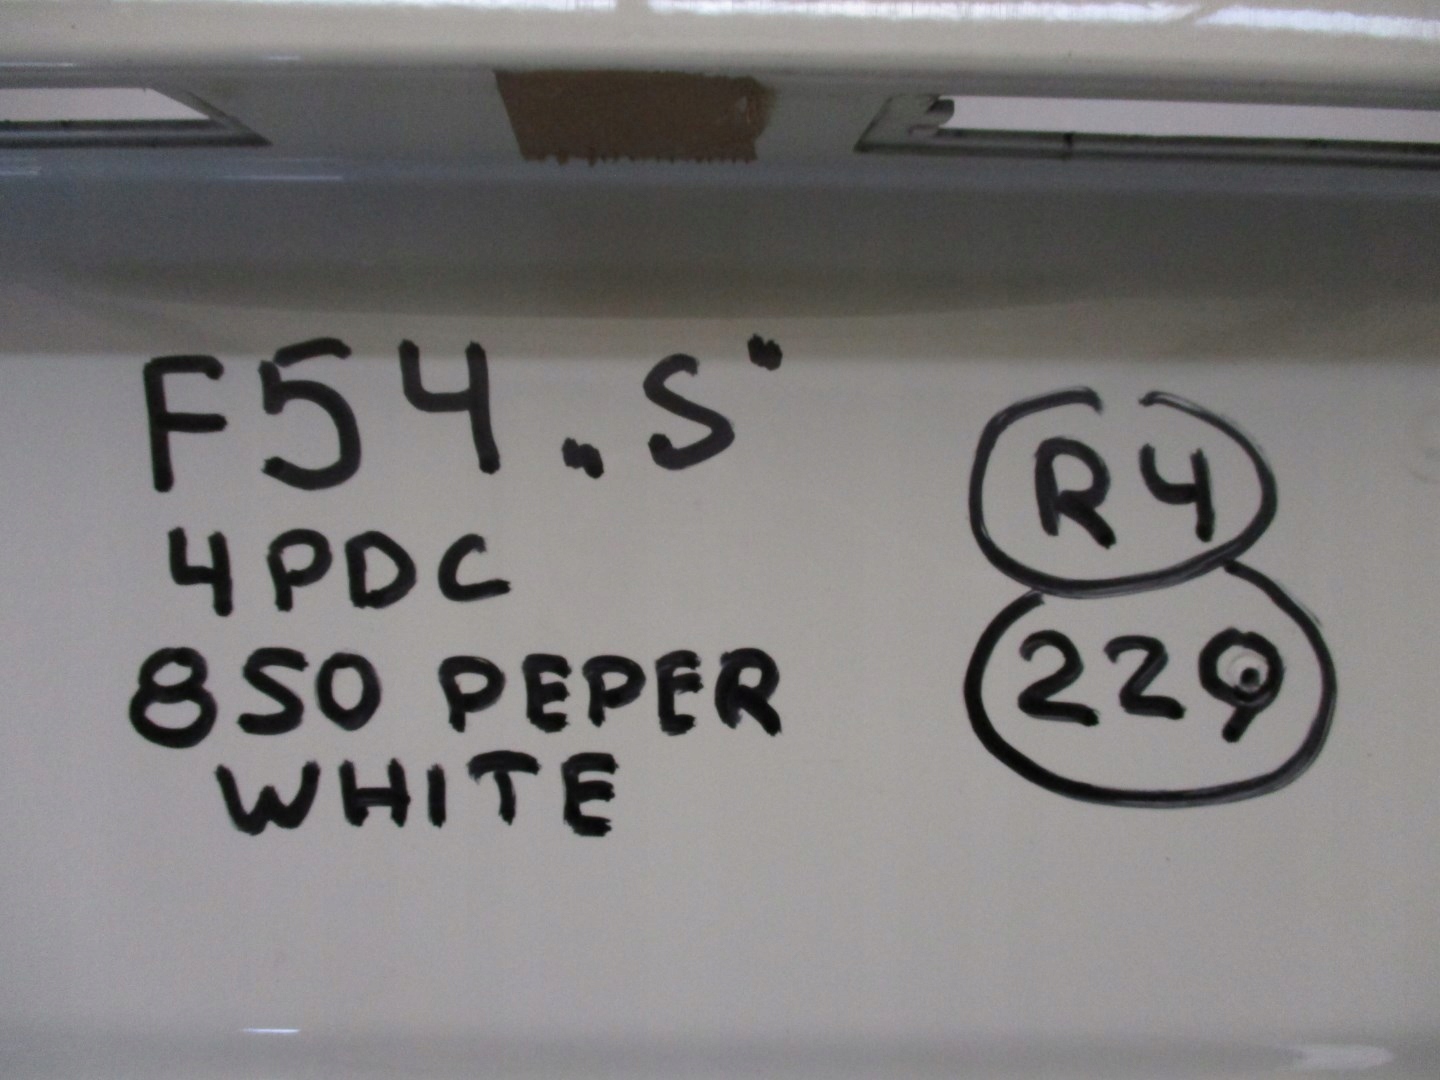 F54 „S"
4PDC
850 PEPER
WHITE
R4
229